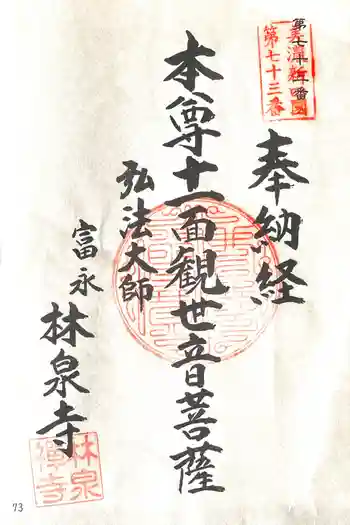 第七十三番
美濃新四国
第七十三番
奉納経
本尊十一面観世音菩薩
弘法大師
富永
林泉寺
林泉
禅寺
73